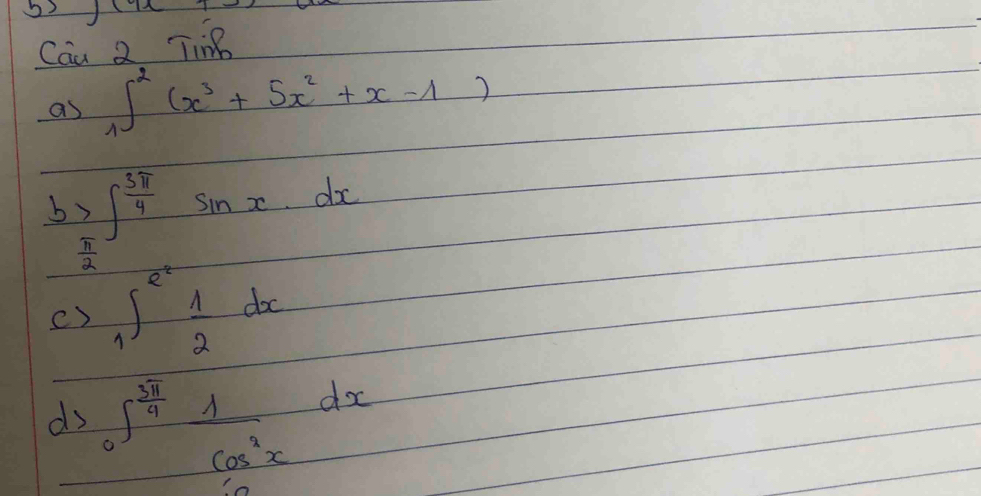 b> ∫(4x + 3) dx
Câu 2 Tính
a> ∫₁² (x³ + 5x² + x - 1 )
b> ∫_{π/2}^{3π/4} sin x. dx
c> ∫₁^{e²} 1/2 dx
d> ∫₀^{3π/4} 1/cos²x dx